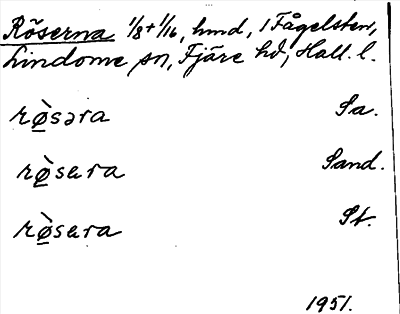 Röserna 1/8 + 1/16, hmd, 1 Fågelsten,
Lindome sn, Fjäre hd, Hall. l.
rø̀səra Sa.
rø̀sera Sand.
rø̀sera St.
1951.